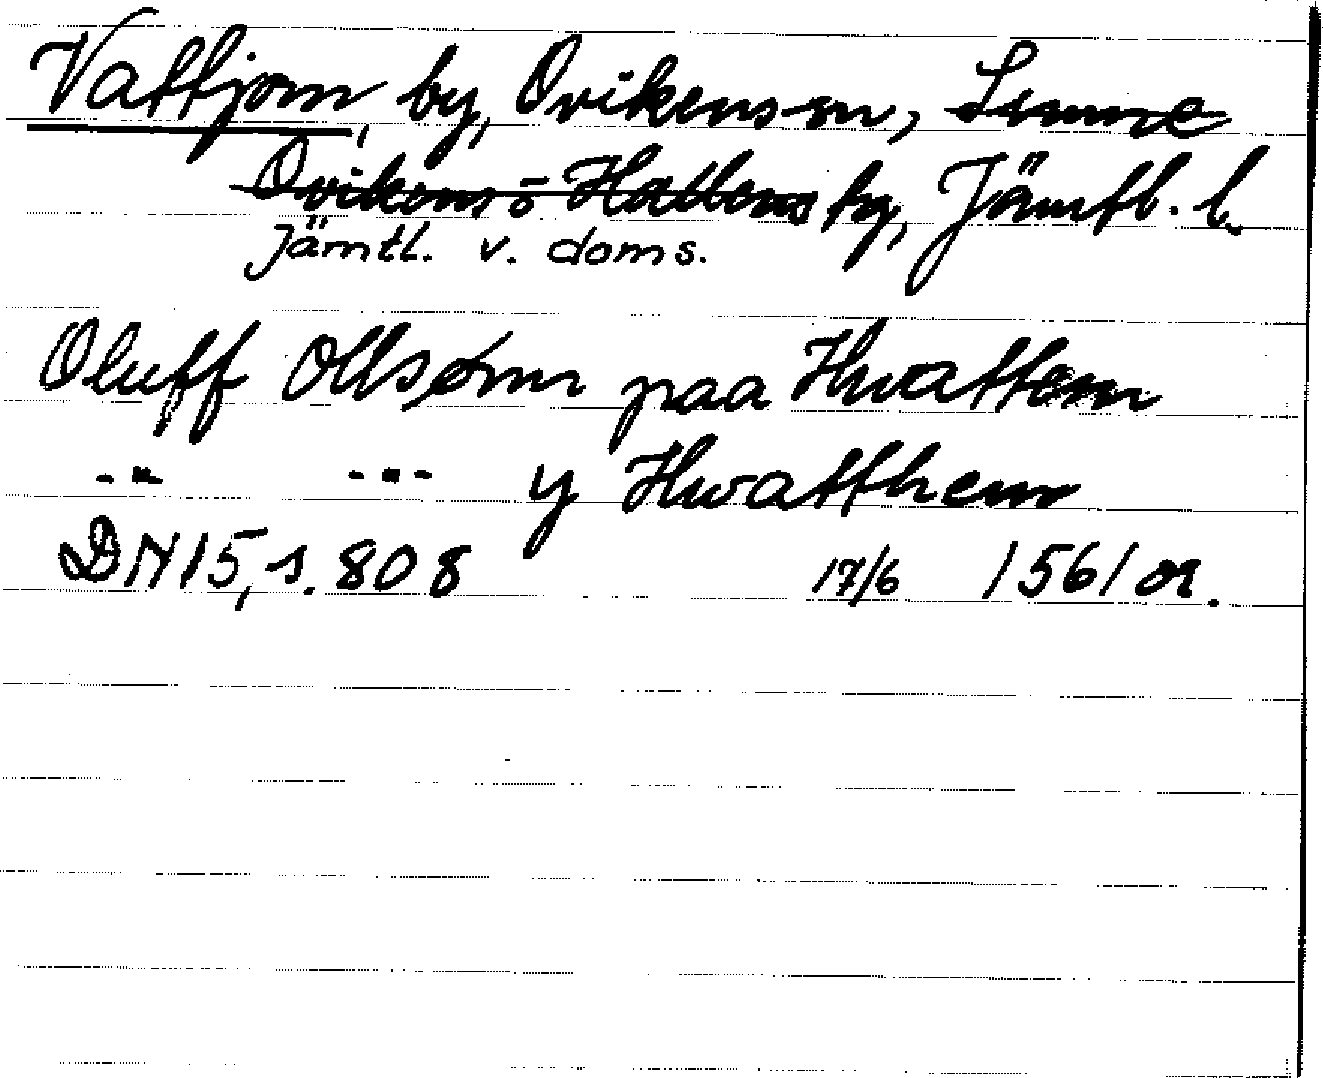 Vattjom, by, Ovikens sn, Sunne
Ovikens o Hallens tg, Jämtl. l.
Jämtl. v. doms.
Oluff Ollsønn paa Hwattom
-"- -"- y Hwatthem
DN 15, s. 808 17/6 1561 or.